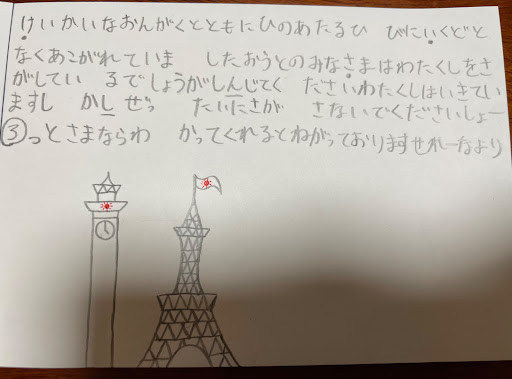 けいかいなおんがくとともにひのあたるひ びにいくどと
なくあこがれていま したおうとのみなさまはわたくしをさ
がしてい るでしょうがしんじてく ださいわたくしはいきてい
ますし かし ぜっ たいにさが さないでくださいしょー
3っとさまならわ かってくれるとねがっております せれーなより